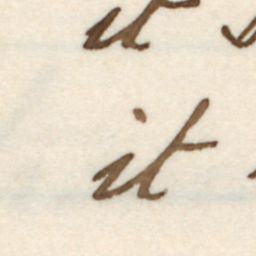 it
it